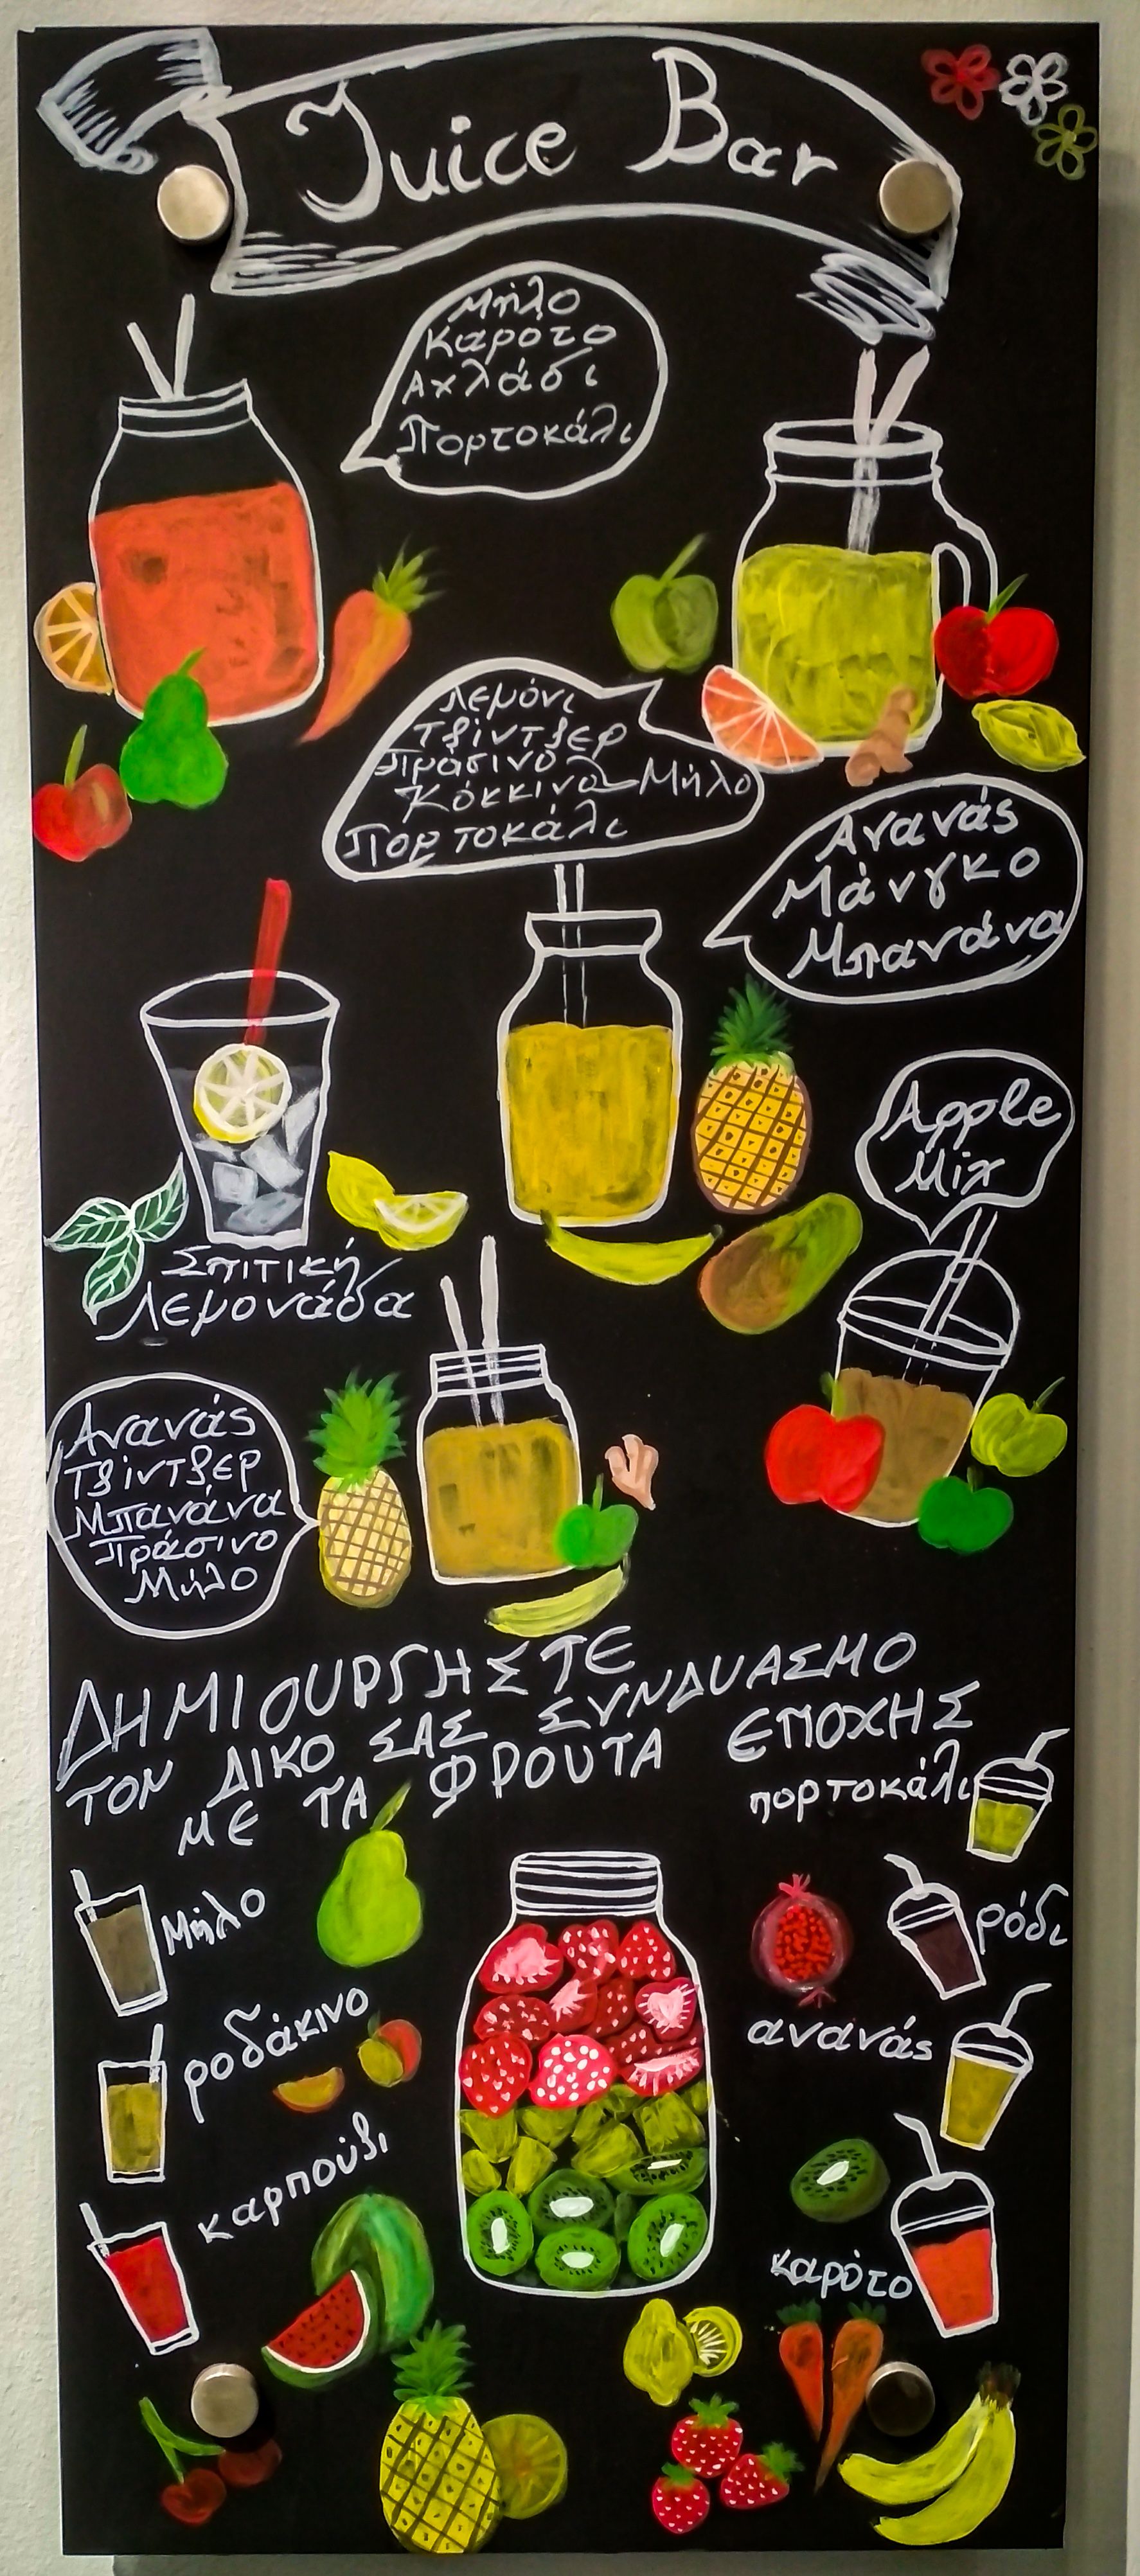 Juice Bar
Μήλο
Καρότο
Αχλάδι
Πορτοκάλι
Λεμόνι
Τζίντζερ
Πράσινο
Κόκκινο Μήλο
Πορτοκάλι
Ανανάς
Μάνγκο
Μπανάνα
Σπιτική
Λεμονάδα
Apple
Mix
Ανανάς
Τζίντζερ
Μπανάνα
Πράσινο
Μήλο
ΔΗΜΙΟΥΡΓΗΣΤΕ
ΤΟΝ ΔΙΚΟ ΣΑΣ ΣΥΝΔΥΑΣΜΟ
ΜΕ ΤΑ ΦΡΟΥΤΑ ΕΠΟΧΗΣ
πορτοκάλι
Μήλο
ρόδι
ροδάκινο
ανανάς
καρπούζι
καρότο